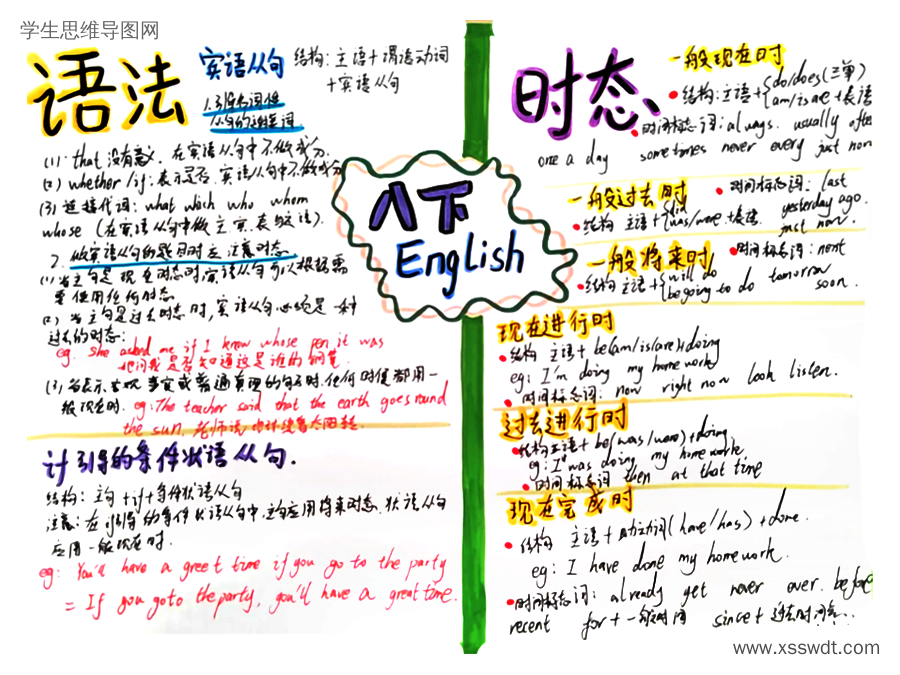 学生思维导图网
语法
宾语从句 结构:主语+谓语动词
+宾语从句
1.引导名词性
从句的连接词
(1)·that 没有意义，在宾语从句中不做成分
(2) whether/if:表示是否，宾语从句中不做成分
(3)连接代词: what which who whom
whose (在宾语从句中做主、宾、表语).
2. 做宾语从句的题目时应注意时态
(1)当主句是现在时态时,宾语从句可以根据需
要使用任何时态
(2) 当主句是过去时态时,宾语从句必须是一种
过去的时态:
eg. she asked me if I knew whose pen it was
他问我是否知道这是谁的钢笔.
(3)当表示客观事实或普通真理的句子时.任何时候都用一
般现在时. eg:The teacher said that the earth goes round
the sun. 老师说,地球绕着太阳转.
计引导的条件状语从句.
结构:主句+if+条件状语从句
注意:在if引导的条件状语从句中,主句应用将来时态.状语从句
应用一般现在时.
eg: You'll have a greet time if you go to the party
= If you goto the party, you'll have a great time.
八下
English
时态、
一般现在时
结构:主语+{do/does(三单)
am/is are+表语
时间标志词:always. usually often
one a day sometimes never every just non
一般过去时
时间标志词: last
yesterday ago.
just now.
结构 主语+{did
was/were+表语
一般将来时
时间标志词: next
tomorrow
soon.
结构 主语+{will do
be going to do
现在进行时
结构 主语+ be(am/is/are)+doing
eg: I'm doing my homework
时间标志词: now right now look listen.
过去进行时
结构主语+ be(was/were)+doing
eg: I was doing my homework.
时间标志词 then at that time
现在完成时
结构 主语+助动词(have/has) +done.
eg: I have done my homework.
时间标志词: already yet never ever. before
recent for+一般时间 since+过去时间点...
www.xsswdt.com